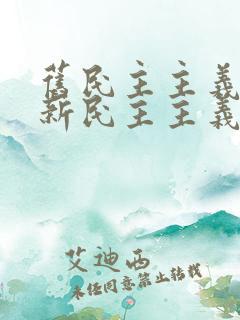 舊民主主義
新民主主義
艾迪西
未經同意禁止转载